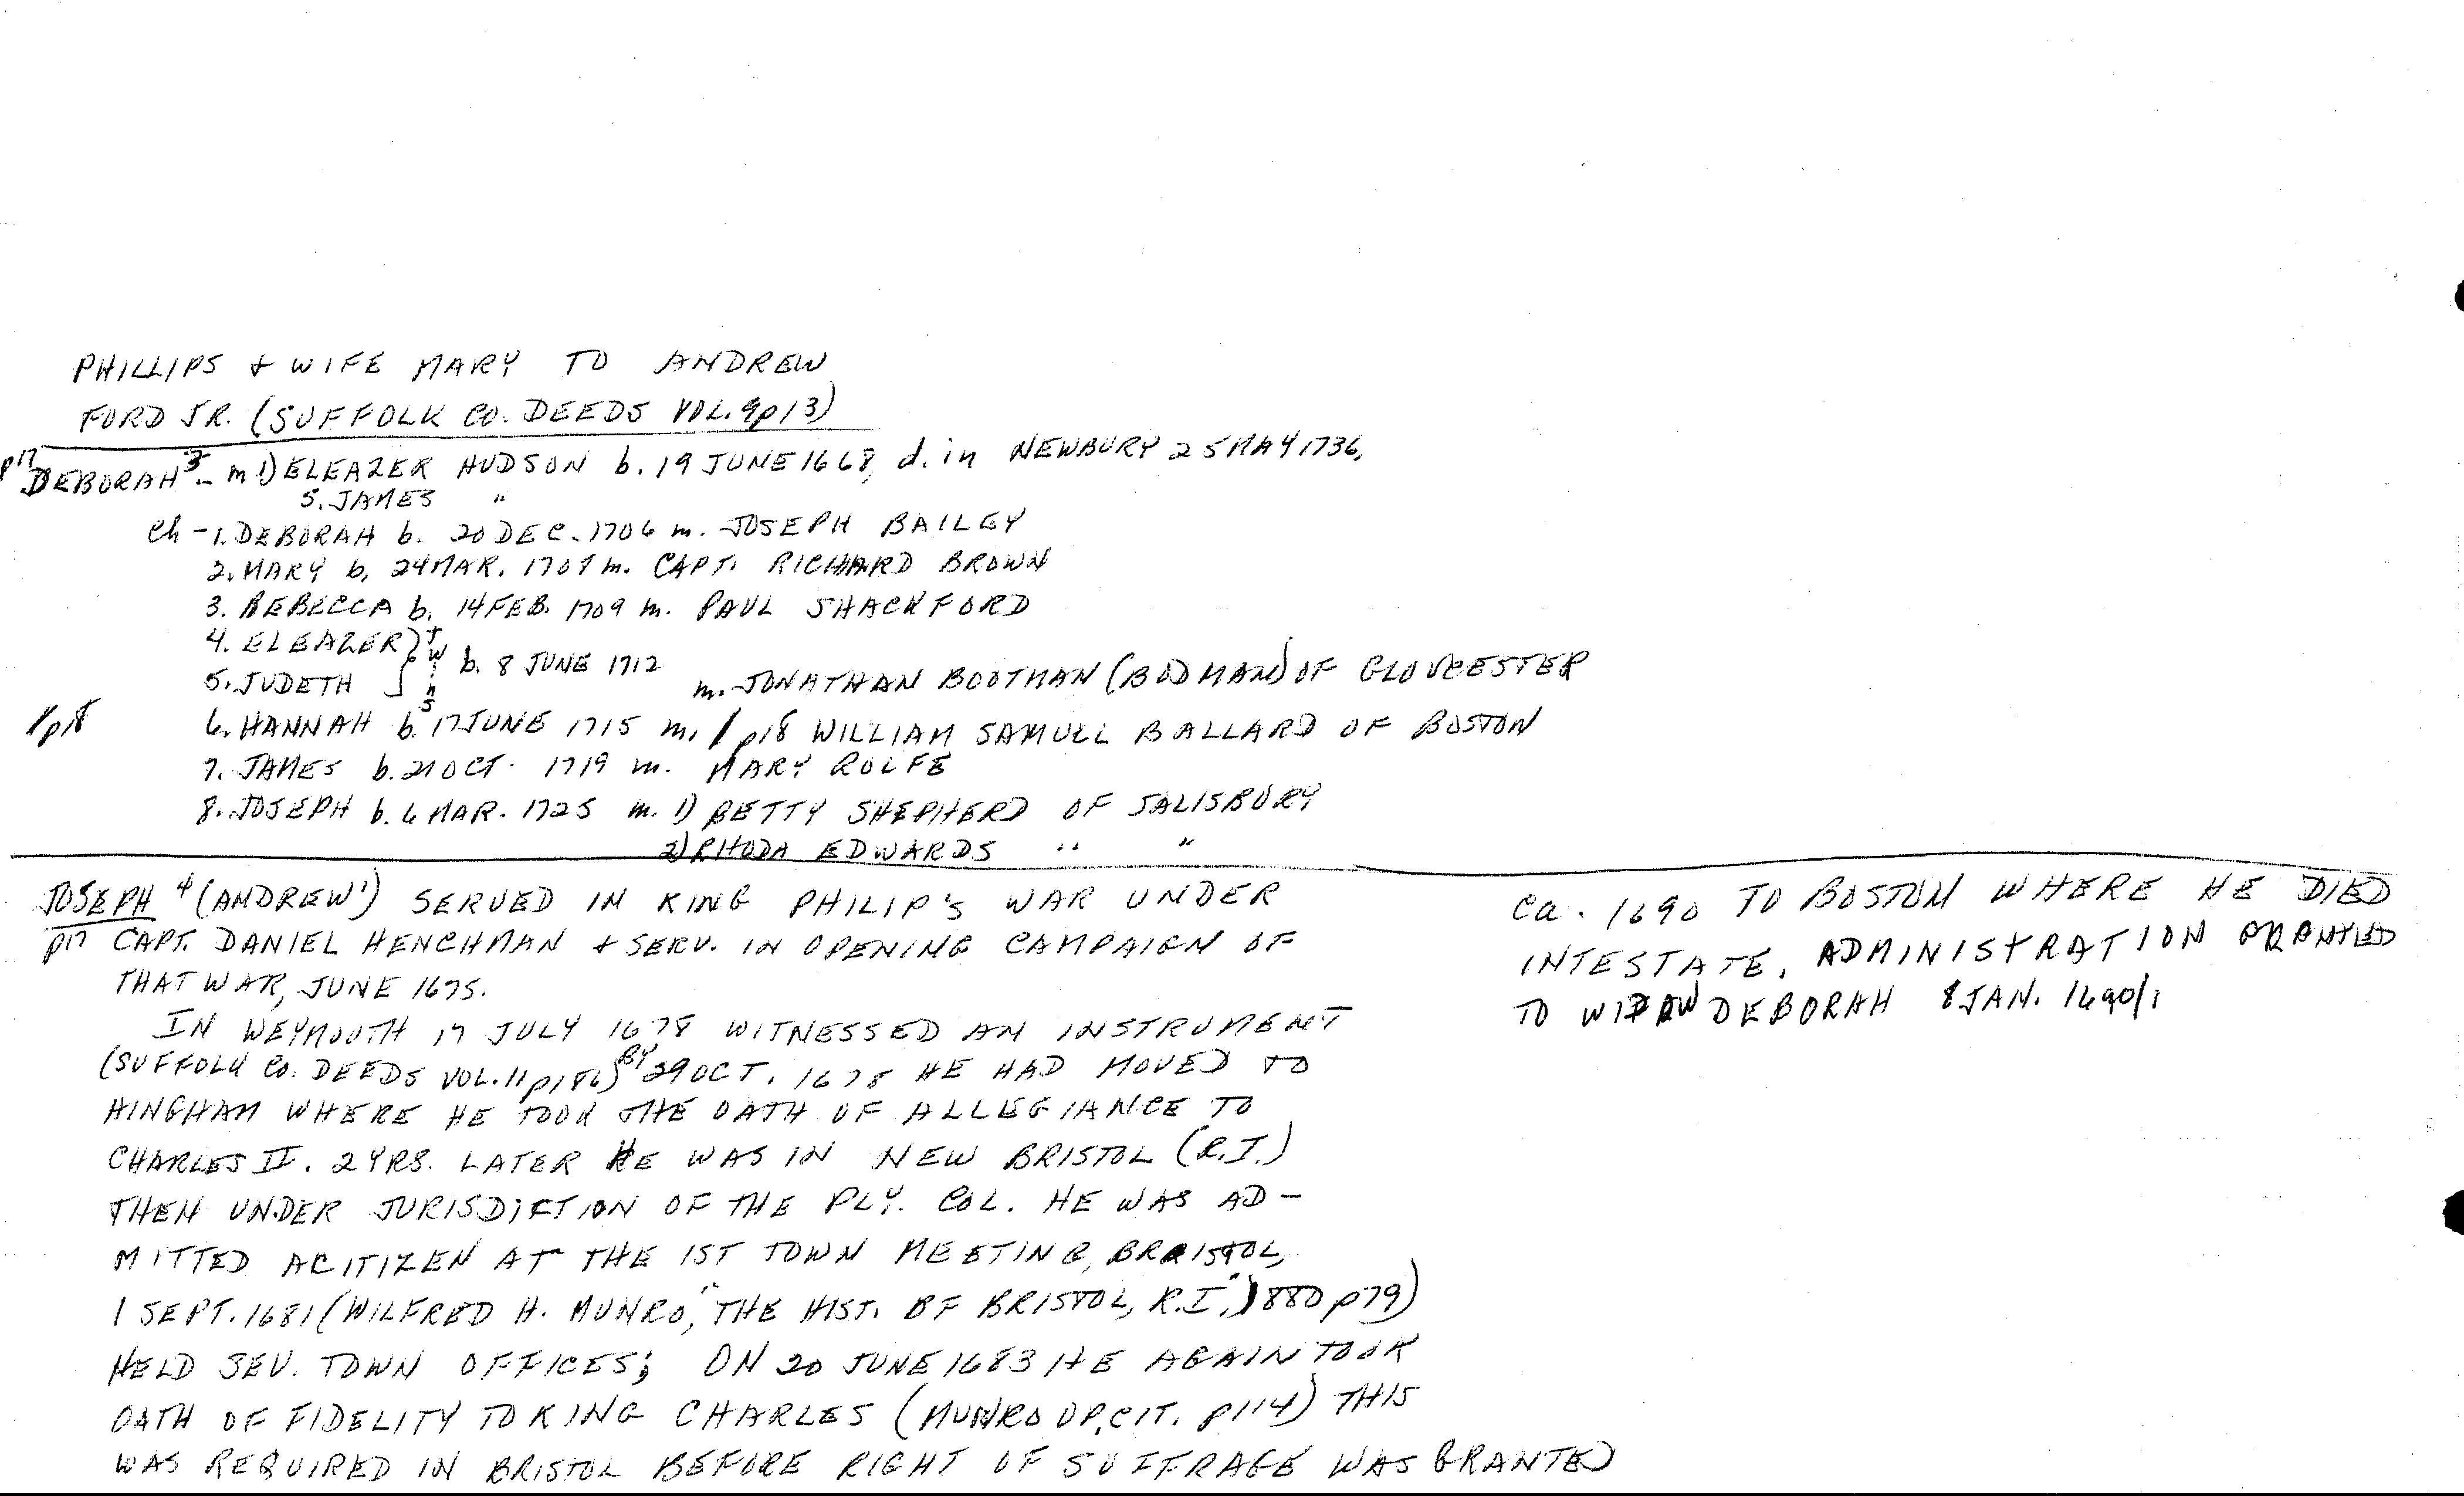 PHILLIPS + WIFE MARY TO ANDREW
FORD JR. (SUFFOLK CO. DEEDS VOL. 9p13)
p17 DEBORAH 3 - m 1) ELEAZER HUDSON b. 19 JUNE 1668, d. in NEWBURY 25 MAY 1736,
S. JAMES "
Ch - 1. DEBORAH b. 20 DEC. 1706 m. JOSEPH BAILEY
2. MARY b, 24 MAR. 1707 m. CAPT. RICHARD BROWN
3. REBECCA b. 14 FEB. 1709 m. PAUL SHACKFORD
4. ELEAZER } twins b. 8 JUNE 1712
5. JUDETH m. JONATHAN BOOTMAN (BODMAN) OF GLOUCESTER
1p18 6. HANNAH b. 17 JUNE 1715 m. /p18 WILLIAM SAMUEL BALLARD OF BOSTON
7. JAMES b. 21 OCT. 1719 m. MARY ROLFE
8. JOSEPH b. 6 MAR. 1725 m. 1) BETTY SHEPHERD OF SALISBURY
2) RHODA EDWARDS " "
JOSEPH 4 (ANDREW 1) SERVED IN KING PHILIP'S WAR UNDER
p17 CAPT. DANIEL HENCHMAN + SERV. IN OPENING CAMPAIGN OF
THAT WAR, JUNE 1675.
IN WEYMOUTH 17 JULY 1678 WITNESSED AN INSTRUMENT
(SUFFOLK CO. DEEDS VOL. 11 p186) BY 29 OCT. 1678 HE HAD MOVED TO
HINGHAM WHERE HE TOOK THE OATH OF ALLEGIANCE TO
CHARLES II. 2 YRS. LATER HE WAS IN NEW BRISTOL (R.I.)
THEN UNDER JURISDICTION OF THE PLY. COL. HE WAS AD-
MITTED A CITIZEN AT THE 1ST TOWN MEETING, BRISTOL,
1 SEPT. 1681 (WILFRED H. MUNRO, "THE HIST. OF BRISTOL, R.I." 1880 p79)
HELD SEV. TOWN OFFICES; ON 20 JUNE 1683 HE AGAIN TOOK
OATH OF FIDELITY TO KING CHARLES (MUNRO OP. CIT. p114) THIS
WAS REQUIRED IN BRISTOL BEFORE RIGHT OF SUFFRAGE WAS GRANTED
Ca. 1690 TO BOSTON WHERE HE DIED
INTESTATE, ADMINISTRATION GRANTED
TO WIDOW DEBORAH 8 JAN. 1690/1